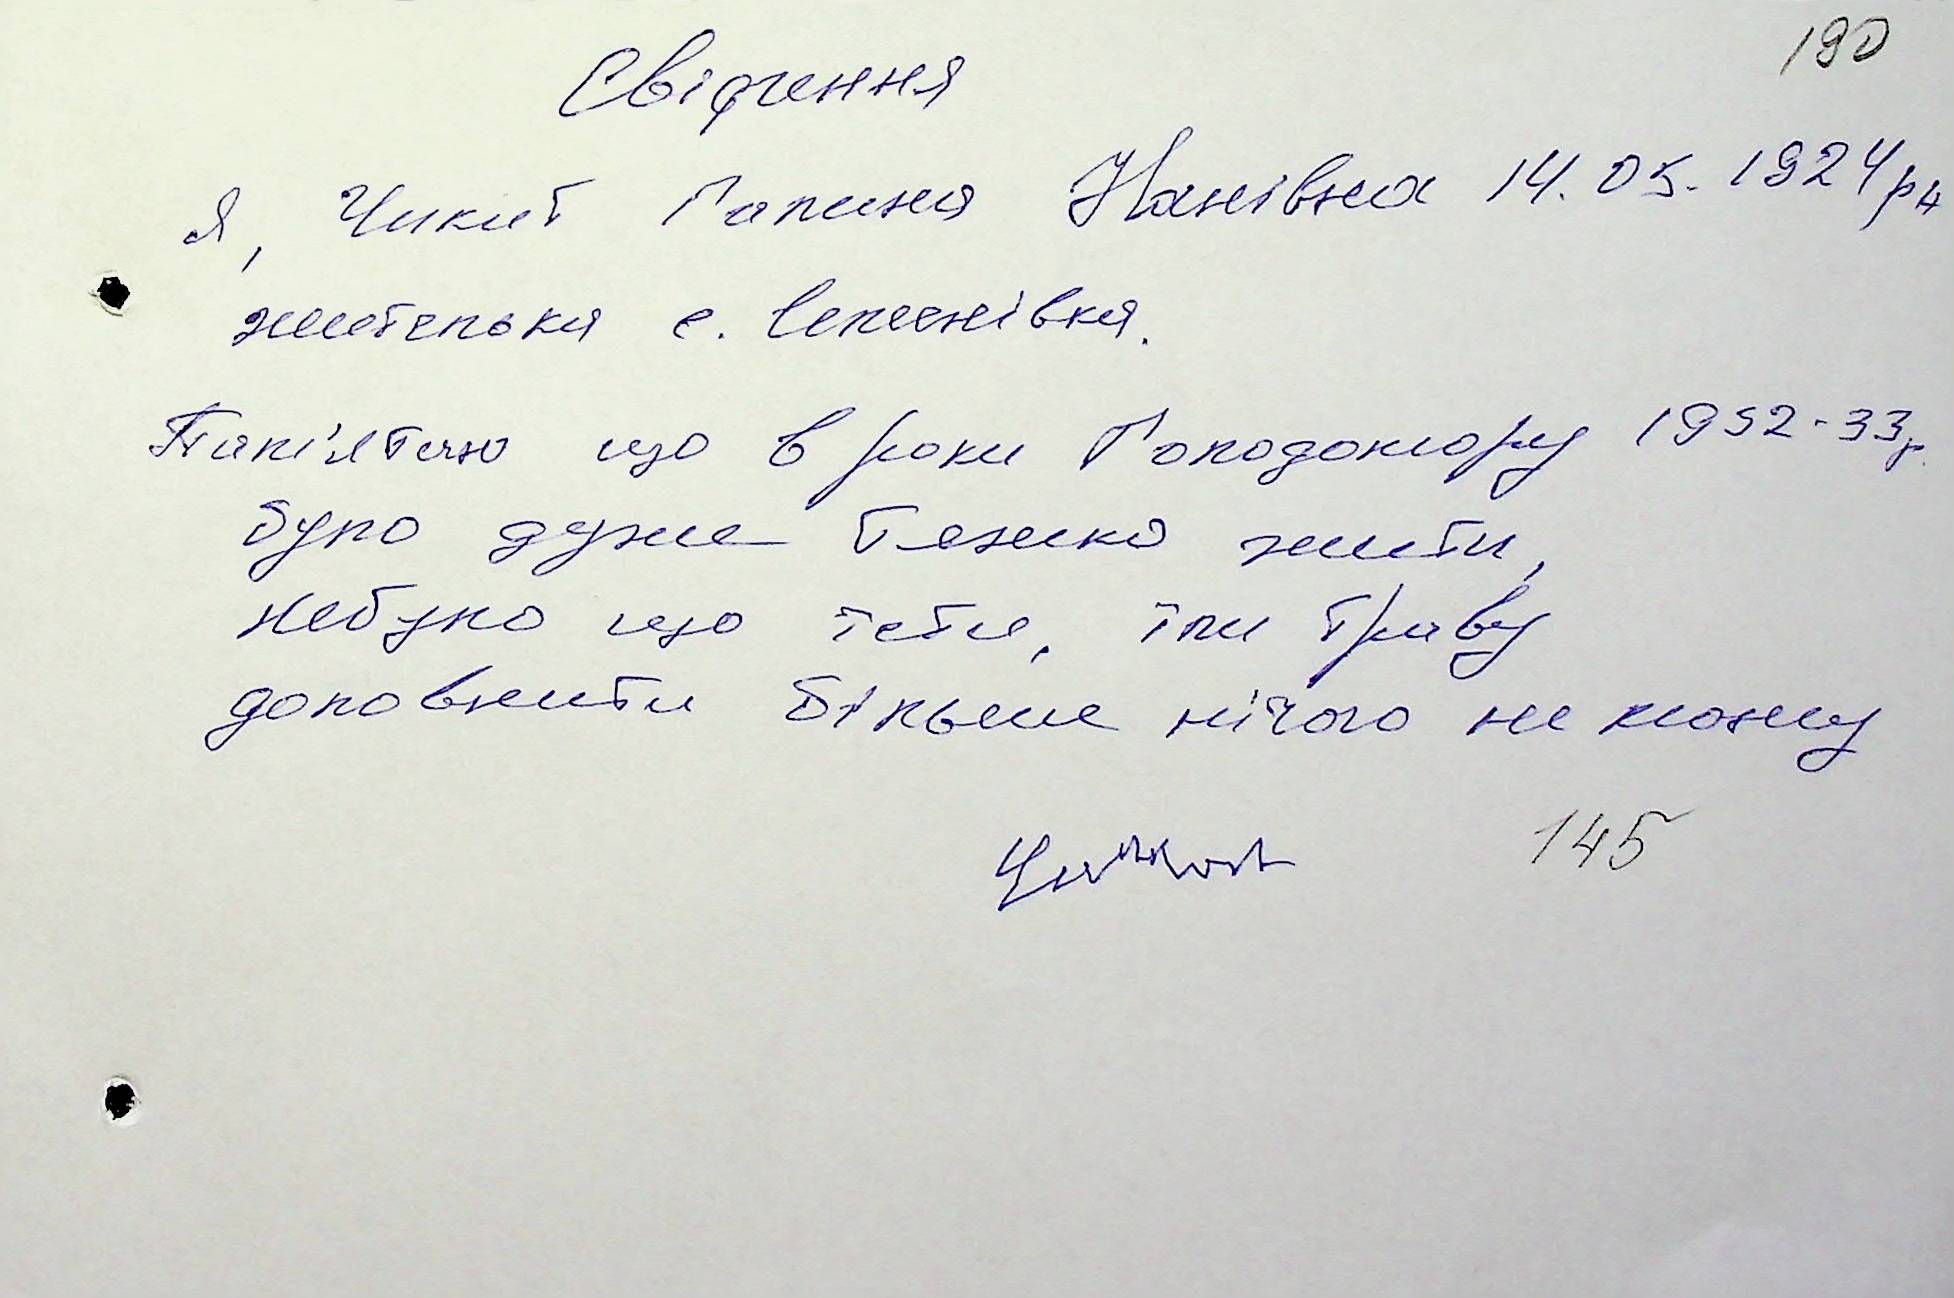 190
Свідчення
Я, Чикит Галина Іванівна 14.05.1924 рн
жителька с. Степанівка.
Пам'ятаю що в роки Голодомору 1932-33р.
було дуже тяжко жити,
небуло що їсти, їли траву
доповнити більше нічого не можу
145